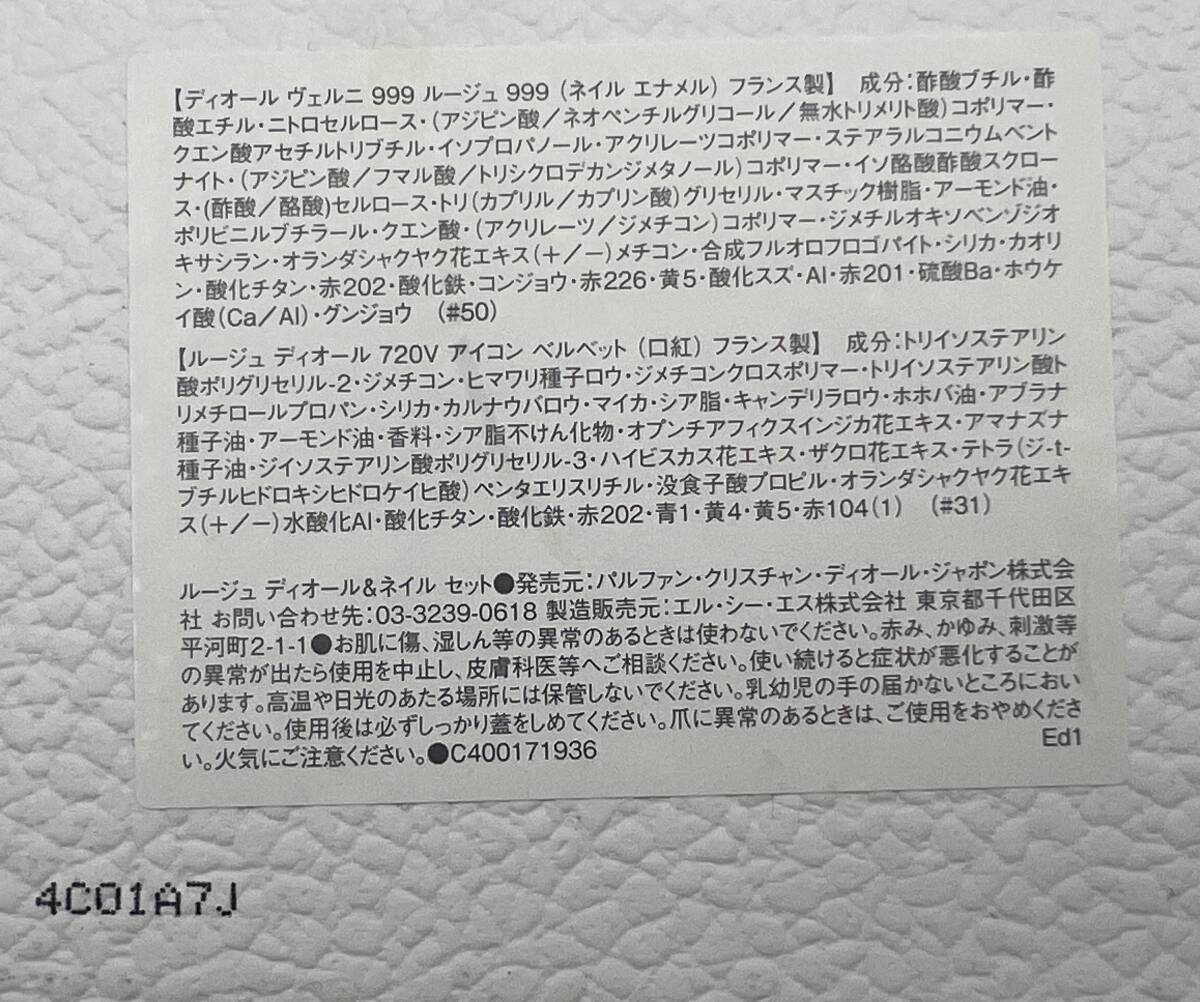 【ディオール ヴェルニ 999 ルージュ 999 （ネイル エナメル） フランス製】　成分：酢酸ブチル・酢
酸エチル・ニトロセルロース・（アジピン酸／ネオペンチルグリコール／無水トリメリト酸）コポリマー・
クエン酸アセチルトリブチル・イソプロパノール・アクリレーツコポリマー・ステアラルコニウムベント
ナイト・（アジピン酸／フマル酸／トリシクロデカンジメタノール）コポリマー・イソ酪酸酢酸スクロー
ス・(酢酸／酪酸)セルロース・トリ（カプリル／カプリン酸）グリセリル・マスチック樹脂・アーモンド油・
ポリビニルブチラール・クエン酸・（アクリレーツ／ジメチコン）コポリマー・ジメチルオキソベンゾジオ
キサシラン・オランダシャクヤク花エキス（＋／－）メチコン・合成フルオロフロゴパイト・シリカ・カオリ
ン・酸化チタン・赤202・酸化鉄・コンジョウ・赤226・黄5・酸化スズ・Al・赤201・硫酸Ba・ホウケ
イ酸（Ca／Al）・グンジョウ　（#50）
【ルージュ ディオール 720V アイコン ベルベット（口紅）フランス製】　成分：トリイソステアリン
酸ポリグリセリル-2・ジメチコン・ヒマワリ種子ロウ・ジメチコンクロスポリマー・トリイソステアリン酸ト
リメチロールプロパン・シリカ・カルナウバロウ・マイカ・シア脂・キャンデリラロウ・ホホバ油・アブラナ
種子油・アーモンド油・香料・シア脂不けん化物・オプンチアフィクスインジカ花エキス・アマナズナ
種子油・ジイソステアリン酸ポリグリセリル-3・ハイビスカス花エキス・ザクロ花エキス・テトラ（ジ-t-
ブチルヒドロキシヒドロケイヒ酸）ペンタエリスリチル・没食子酸プロピル・オランダシャクヤク花エキ
ス（＋／－）水酸化Al・酸化チタン・酸化鉄・赤202・青1・黄4・黄5・赤104（1）　（#31）
ルージュ ディオール&ネイル セット●発売元：パルファン・クリスチャン・ディオール・ジャポン株式会
社 お問い合わせ先：03-3239-0618 製造販売元：エル・シー・エス株式会社 東京都千代田区
平河町2-1-1●お肌に傷、湿しん等の異常のあるときは使わないでください。赤み、かゆみ、刺激等
の異常が出たら使用を中止し、皮膚科医等へご相談ください。使い続けると症状が悪化することが
あります。高温や日光のあたる場所には保管しないでください。乳幼児の手の届かないところにおい
てください。使用後は必ずしっかり蓋をしめてください。爪に異常のあるときは、ご使用をおやめくださ
い。火気にご注意ください。●C400171936
Ed1
4C01A7J